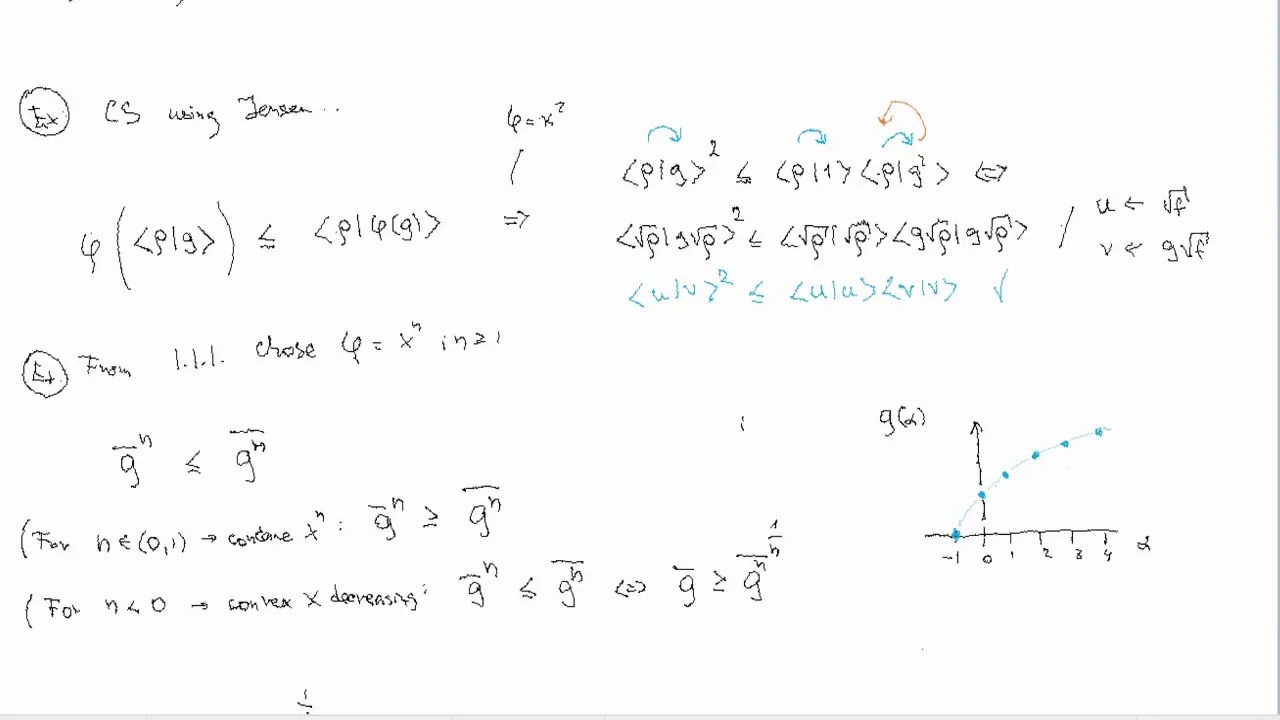 Ex CS using Jensen...
φ = x²
⟨ρ|g⟩² ≤ ⟨ρ|1⟩⟨ρ|g²⟩ ⇔
φ(⟨ρ|g⟩) ≤ ⟨ρ|φ(g)⟩ ⇒
⟨√ρ|g√ρ⟩² ≤ ⟨√ρ|√ρ⟩⟨g√ρ|g√ρ⟩ / u ← √ρ
v ← g√ρ
⟨u|v⟩² ≤ ⟨u|u⟩⟨v|v⟩ √
Ex. From 1.1.1. chose φ = xⁿ ; n ≥ 1
g̅ⁿ ≤ \overline{gⁿ}
(For n ∈ (0,1) → concave xⁿ: g̅ⁿ ≥ \overline{gⁿ}
(For n < 0 → convex x decreasing: g̅ⁿ ≤ \overline{gⁿ} ⇔ g̅ ≥ \overline{gⁿ}^{1/n}
g(α)
-1 0 1 2 3 4 α